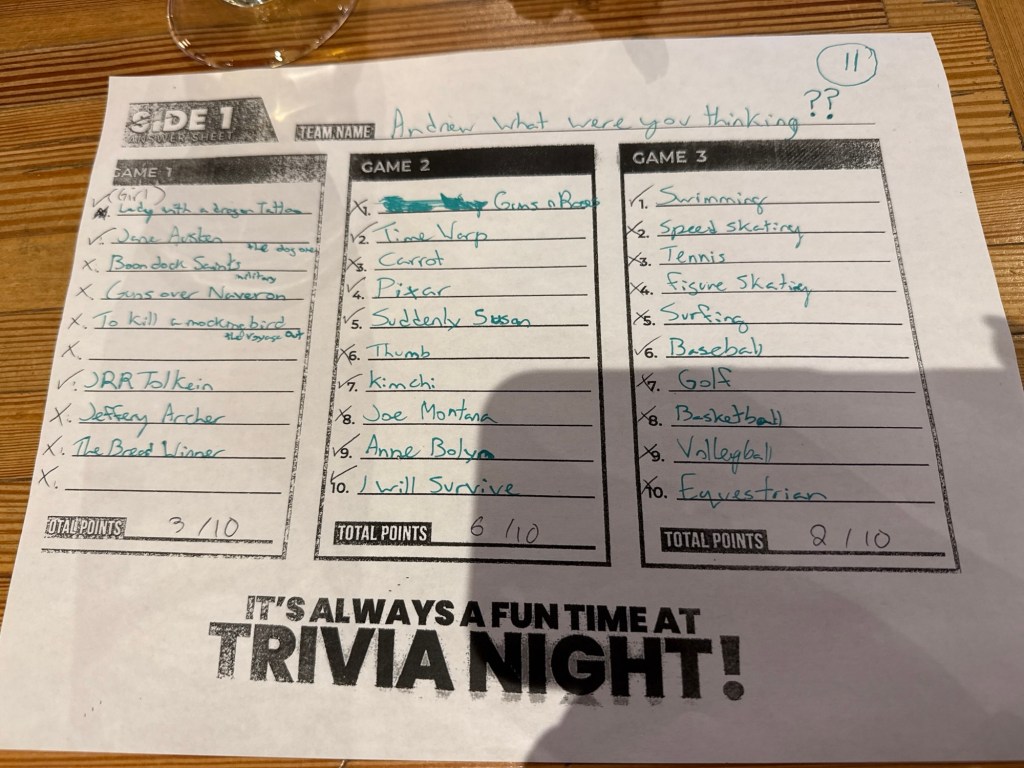 11
SIDE 1
ANSWER SHEET
TEAM NAME Andrew what were you thinking ??
GAME 1
(Girl)
Lady with a dragon Tattoo
Jane Austen
the dog
Boondock Saints
military
Guns over Naveron
To kill a mockingbird
the voyage out
JRR Tolkein
Jeffery Archer
The Bread Winner
TOTAL POINTS 3 /10
GAME 2
1. Guns n Roses
2. Time Warp
3. Carrot
4. Pixar
5. Suddenly Susan
6. Thumb
7. Kimchi
8. Joe Montana
9. Anne Bolyn
10. I will Survive
TOTAL POINTS 6 /10
GAME 3
1. Swimming
2. Speed skating
3. Tennis
4. figure skating
5. Surfing
6. Baseball
7. Golf
8. Basketball
9. Volleyball
10. Eqvestrian
TOTAL POINTS 2 /10
IT'S ALWAYS A FUN TIME AT
TRIVIA NIGHT!